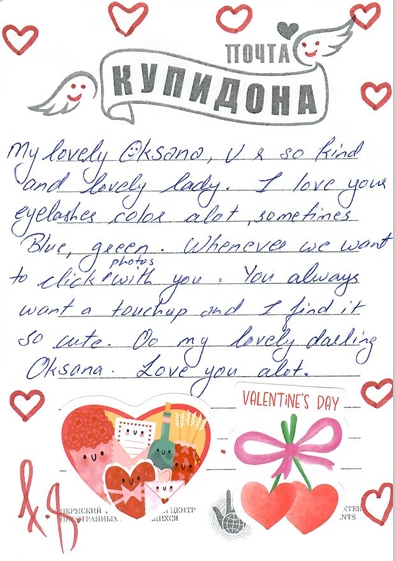 ПОЧТА
КУПИДОНА
My lovely Oksana, U R so kind
and lovely lady. I love your
eyelashes color alot, sometimes
Blue, green. Whenever we want
to click photos with you. You always
want a touchup and I find it
so cute. Oo my lovely darling
Oksana. Love you alot.
VALENTINE'S DAY
ЦЕНТР